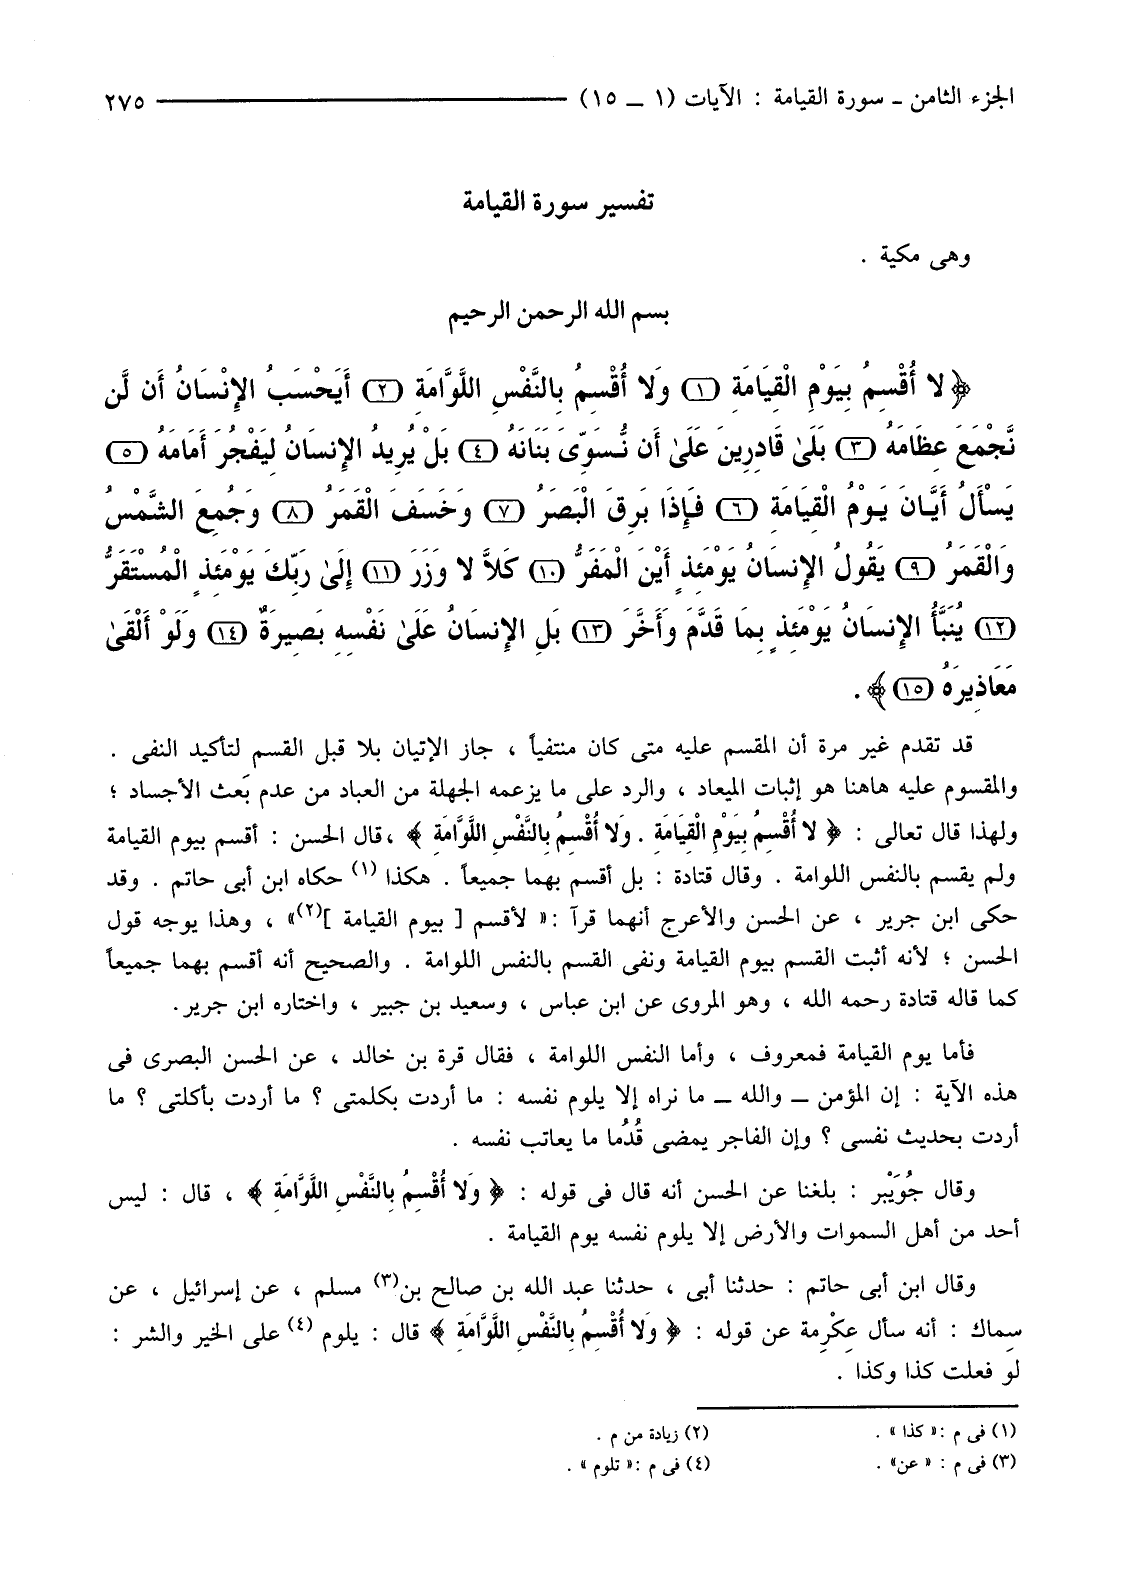 الجزء الثامن ـ سورة القيامة : الآيات (١ ــ ١٥) ٢٧٥
تفسير سورة القيامة
وهى مكية .
بسم الله الرحمن الرحيم
﴿ لا أُقْسِمُ بِيَوْمِ الْقِيَامَةِ (١) وَلا أُقْسِمُ بِالنَّفْسِ اللَّوَّامَةِ (٢) أَيَحْسَبُ الإِنْسَانُ أَن لَّن
نَّجْمَعَ عِظَامَهُ (٣) بَلَىٰ قَادِرِينَ عَلَىٰ أَن نُّسَوِّىَ بَنَانَهُ (٤) بَلْ يُرِيدُ الإِنسَانُ لِيَفْجُرَ أَمَامَهُ (٥)
يَسْأَلُ أَيَّانَ يَوْمُ الْقِيَامَةِ (٦) فَإِذَا بَرِقَ الْبَصَرُ (٧) وَخَسَفَ الْقَمَرُ (٨) وَجُمِعَ الشَّمْسُ
وَالْقَمَرُ (٩) يَقُولُ الإِنسَانُ يَوْمَئِذٍ أَيْنَ الْمَفَرُّ (١٠) كَلاَّ لا وَزَرَ (١١) إِلَىٰ رَبِّكَ يَوْمَئِذٍ الْمُسْتَقَرُّ
(١٢) يُنَبَّأُ الإِنسَانُ يَوْمَئِذٍ بِمَا قَدَّمَ وَأَخَّرَ (١٣) بَلِ الإِنسَانُ عَلَىٰ نَفْسِهِ بَصِيرَةٌ (١٤) وَلَوْ أَلْقَىٰ
مَعَاذِيرَهُ (١٥) ﴾ .
قد تقدم غير مرة أن المقسم عليه متى كان منتفياً ، جاز الإتيان بلا قبل القسم لتأكيد النفى .
والمقسوم عليه هاهنا هو إثبات الميعاد ، والرد على ما يزعمه الجهلة من العباد من عدم بَعث الأجساد ؛
ولهذا قال تعالى : ﴿ لا أُقْسِمُ بِيَوْمِ الْقِيَامَةِ . وَلا أُقْسِمُ بِالنَّفْسِ اللَّوَّامَةِ ﴾ ،قال الحسن : أقسم بيوم القيامة
ولم يقسم بالنفس اللوامة . وقال قتادة : بل أقسم بهما جميعاً . هكذا (١) حكاه ابن أبى حاتم . وقد
حكى ابن جرير ، عن الحسن والأعرج أنهما قرآ :« لأقسم [ بيوم القيامة ](٢)» ، وهذا يوجه قول
الحسن ؛ لأنه أثبت القسم بيوم القيامة ونفى القسم بالنفس اللوامة . والصحيح أنه أقسم بهما جميعاً
كما قاله قتادة رحمه الله ، وهو المروى عن ابن عباس ، وسعيد بن جبير ، واختاره ابن جرير.
فأما يوم القيامة فمعروف ، وأما النفس اللوامة ، فقال قرة بن خالد ، عن الحسن البصرى فى
هذه الآية : إن المؤمن ــ والله ــ ما نراه إلا يلوم نفسه : ما أردت بكلمتى ؟ ما أردت بأكلتى ؟ ما
أردت بحديث نفسى ؟ وإن الفاجر يمضى قُدُما ما يعاتب نفسه .
وقال جُوَيْبر : بلغنا عن الحسن أنه قال فى قوله : ﴿ وَلا أُقْسِمُ بِالنَّفْسِ اللَّوَّامَةِ ﴾ ، قال : ليس
أحد من أهل السموات والأرض إلا يلوم نفسه يوم القيامة .
وقال ابن أبى حاتم : حدثنا أبى ، حدثنا عبد الله بن صالح بن(٣) مسلم ، عن إسرائيل ، عن
سِماك : أنه سأل عِكْرِمة عن قوله : ﴿ وَلا أُقْسِمُ بِالنَّفْسِ اللَّوَّامَةِ ﴾ قال : يلوم (٤) على الخير والشر :
لو فعلت كذا وكذا .
(١) فى م :« كذا » . (٢) زيادة من م .
(٣) فى م : « عن» . (٤) فى م :« تلوم » .